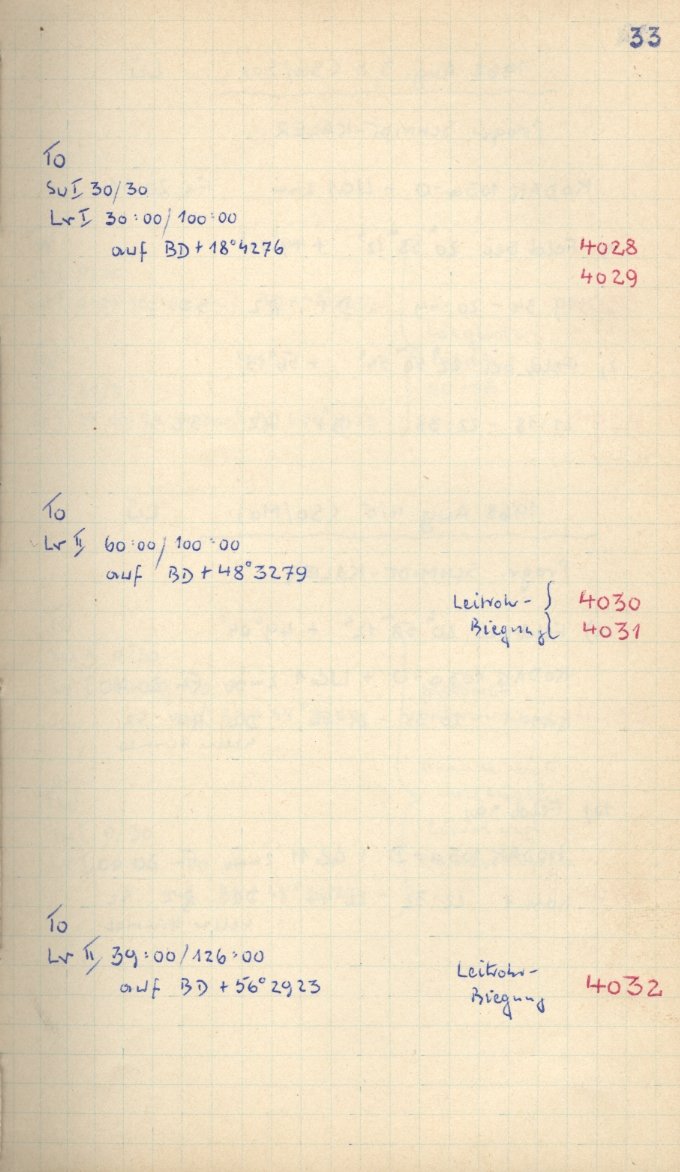 33
To
Su I 30/30
Lr I 30:00/100:00
auf BD+18°4276
4028
4029
To
Lr II 60:00/100:00
auf BD+48°3279
Leitrohr- 4030
Biegung 4031
To
Lr II, 39:00/126:00
auf BD+56°2923
Leitrohr- 4032
Biegung